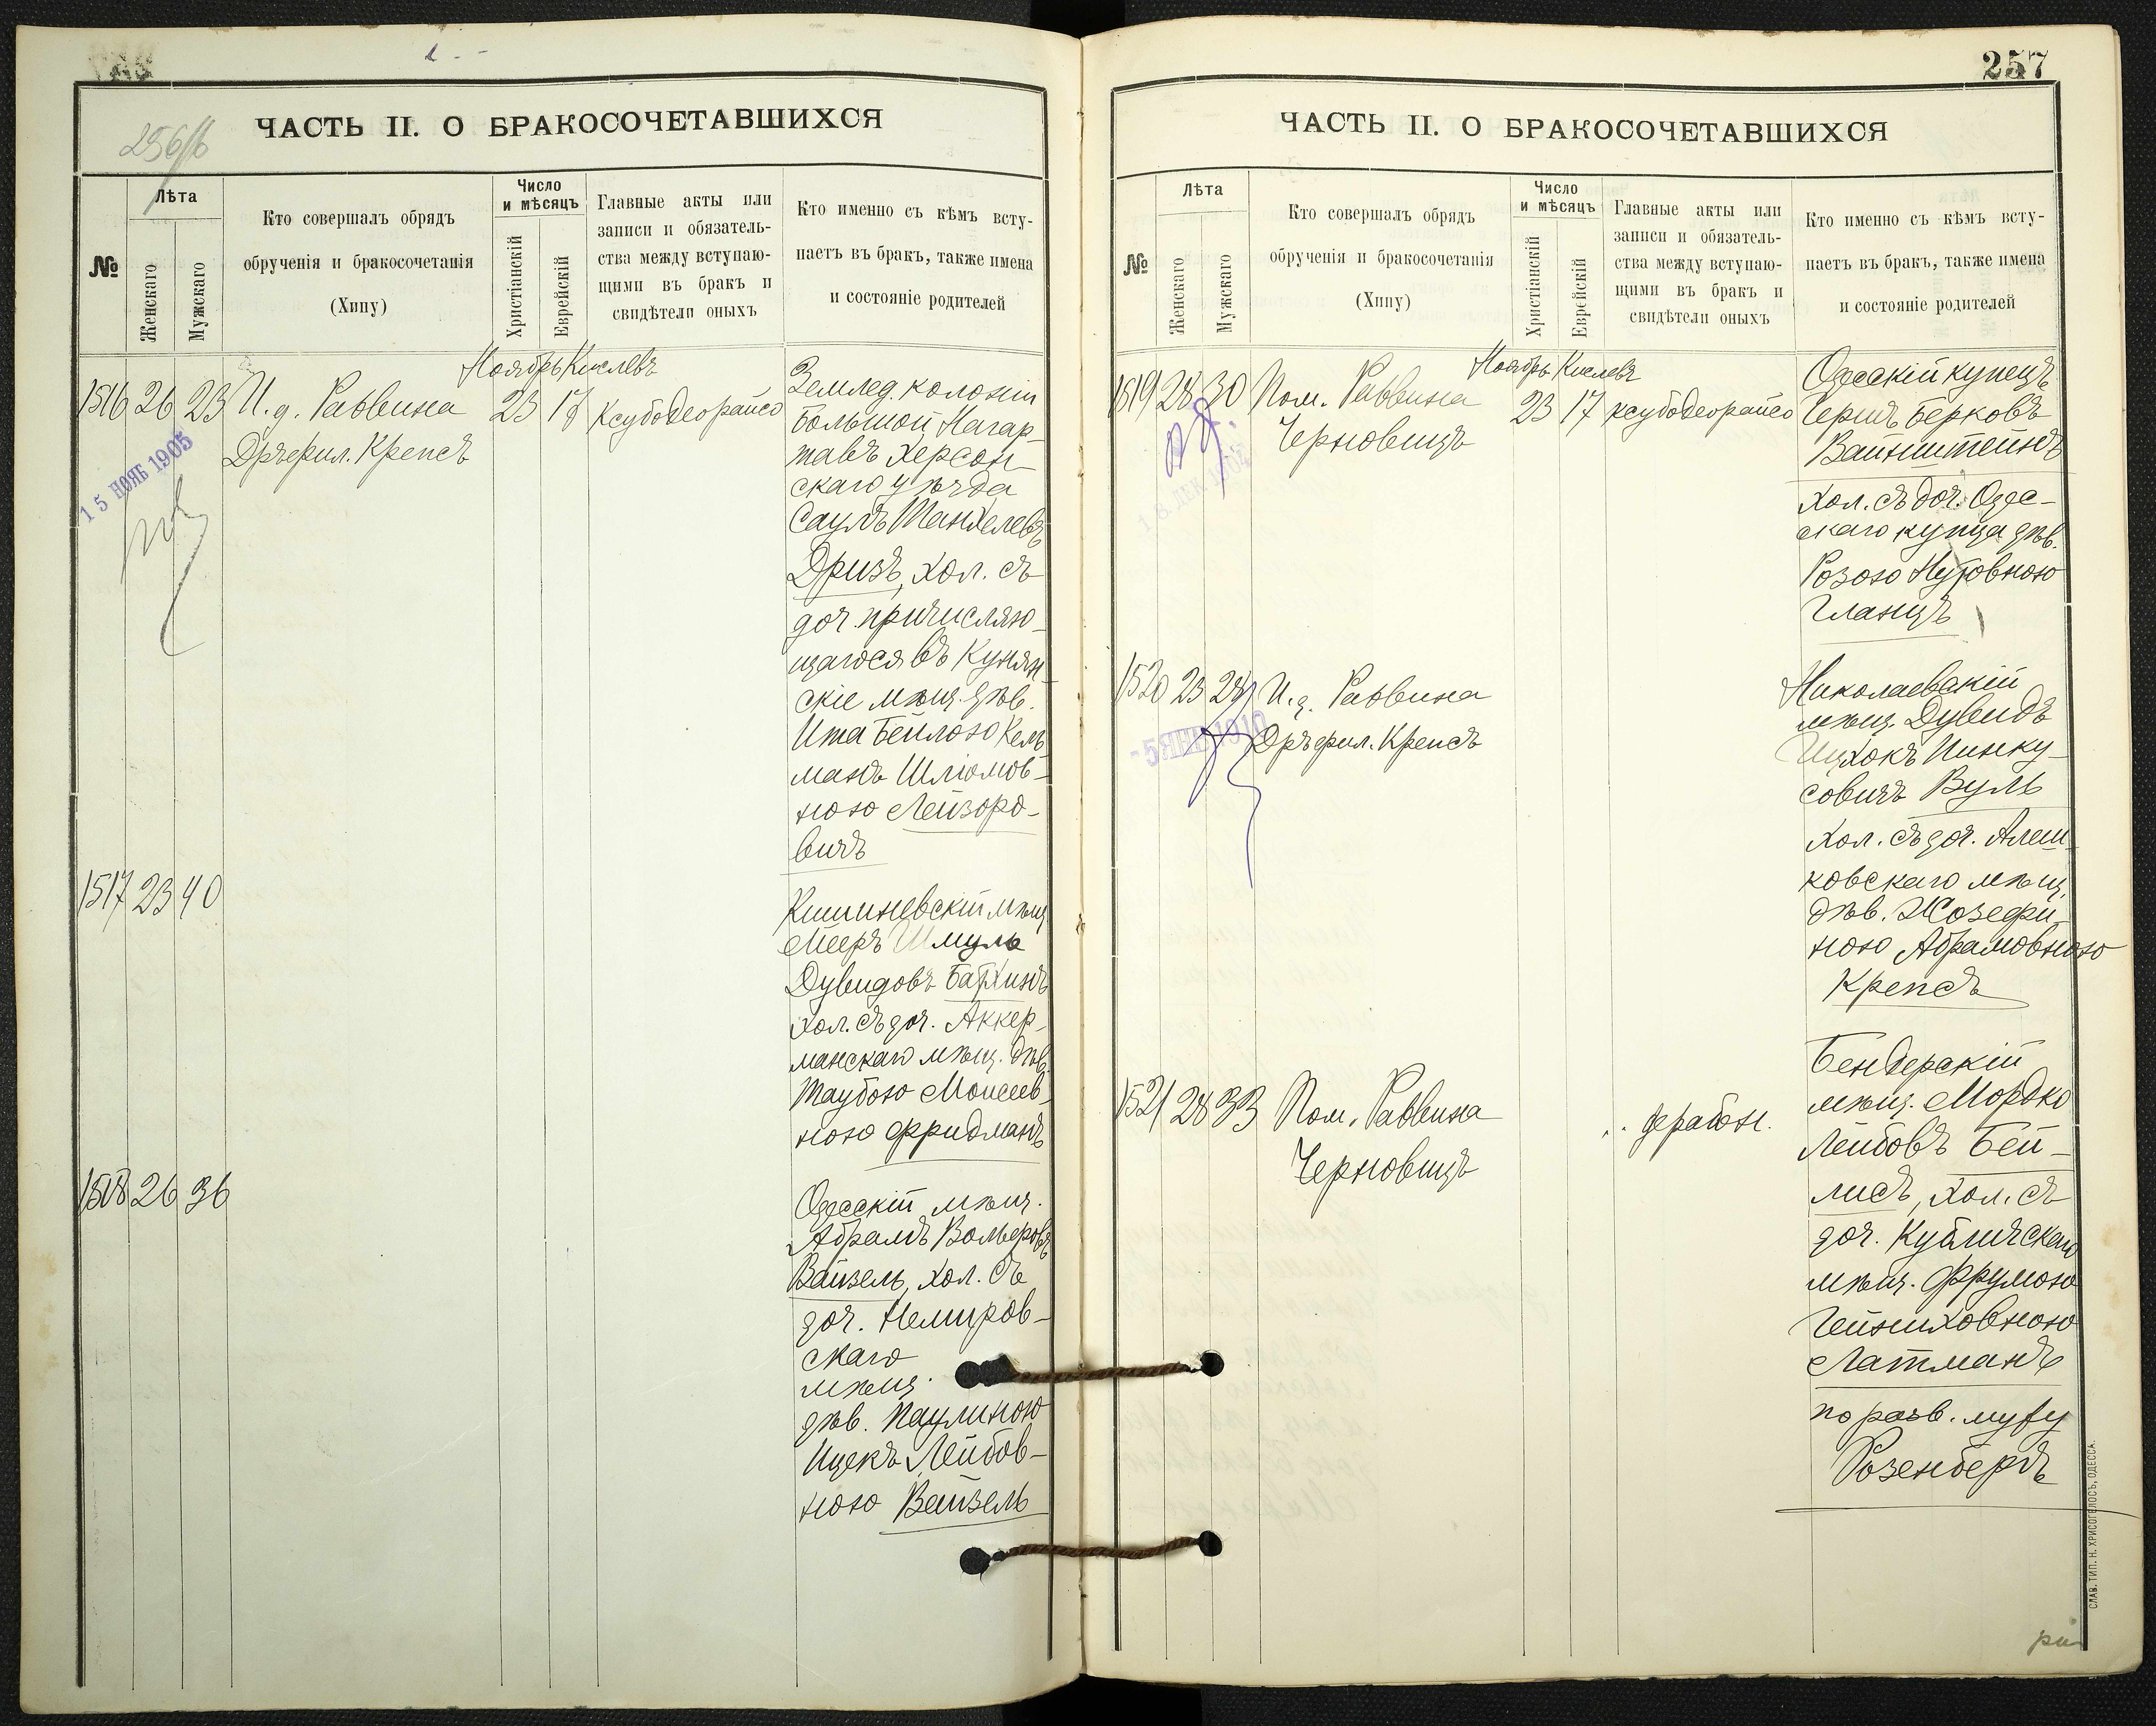 256/б
ЧАСТЬ II. О БРАКОСОЧЕТАВШИХСЯ
№
Лѣта
Женскаго
Мужскаго
Кто совершалъ обрядъ
обрученія и бракосочетанія
(Хипу)
Число
и мѣсяцъ
Христіанскій
Еврейскій
Главные акты или
записи и обязатель-
ства между вступаю-
щими въ бракъ и
свидѣтели оныхъ
Кто именно съ кѣмъ всту-
паетъ въ бракъ, также имена
и состояніе родителей
Ноябрь Кислевъ
1516 26 23 И.д. Раввина 23 17 ксубодеорайсо
Дръфил. Крепсъ
15 НОЯБ 1905
Землед. колоніи
Большой Нагар-
тавъ Херсон-
скаго уѣзда
Саулъ Манхелевъ
Дризъ, хол. съ
доч. причисляю-
щагося въ Кунян-
скіе мѣщ. дѣв.
Ита Бейлою Кель-
манъ Шліомов-
ною Лейзоро-
вичъ
1517 23 40
Кишиневскій мѣщ.
Мееръ Шмуль
Дувидовъ Бархинъ
хол. съ доч. Аккер-
манскаго мѣщ. дѣв.
Таубою Моисеев-
ною Фридманъ
1518 26 36
Одесскій мѣщ.
Абрамъ Вольфовъ
Вайзель, хол. съ
доч. Немиров-
скаго
мѣщ.
дѣв. Паулиною
Ицекъ Лейбов-
ною Вайзель
257
ЧАСТЬ II. О БРАКОСОЧЕТАВШИХСЯ
№
Лѣта
Женскаго
Мужскаго
Кто совершалъ обрядъ
обрученія и бракосочетанія
(Хипу)
Число
и мѣсяцъ
Христіанскій
Еврейскій
Главные акты или
записи и обязатель-
ства между вступаю-
щими въ бракъ и
свидѣтели оныхъ
Кто именно съ кѣмъ всту-
паетъ въ бракъ, также имена
и состояніе родителей
Ноябрь Кислевъ
1519 28 30 Пом. Раввина 23 17 ксубодеорайсо
Черновицъ
Одесскій купецъ
Гершъ Берковъ
Вайнштейнъ
хол. съ доч. Одес-
скаго купца дѣв.
Розою Нутовною
Гланцъ
1520 23 28 И.д. Раввина
Дръфил. Крепсъ
- 5 ЯНВ 1910
Николаевскій
мѣщ. Дувидъ
Ицхокъ Пинку-
совичъ Вуль
хол. съ доч. Алеш-
ковскаго мѣщ.
дѣв. Жозефи-
ною Абрамовною
Крепсъ
1521 28 33 Пом. Раввина
Черновицъ
Бендерскій
мѣщ. Мордко
Лейбовъ Бей-
лисъ, хол. съ
доч. Кубличскаго
мѣщ. Фрумою
Гейниховною
Латманъ
по разв. мужу
Розенбергъ
СЛАВ. ТИП. Н. ХРИСОГЕЛОСЪ, ОДЕССА.